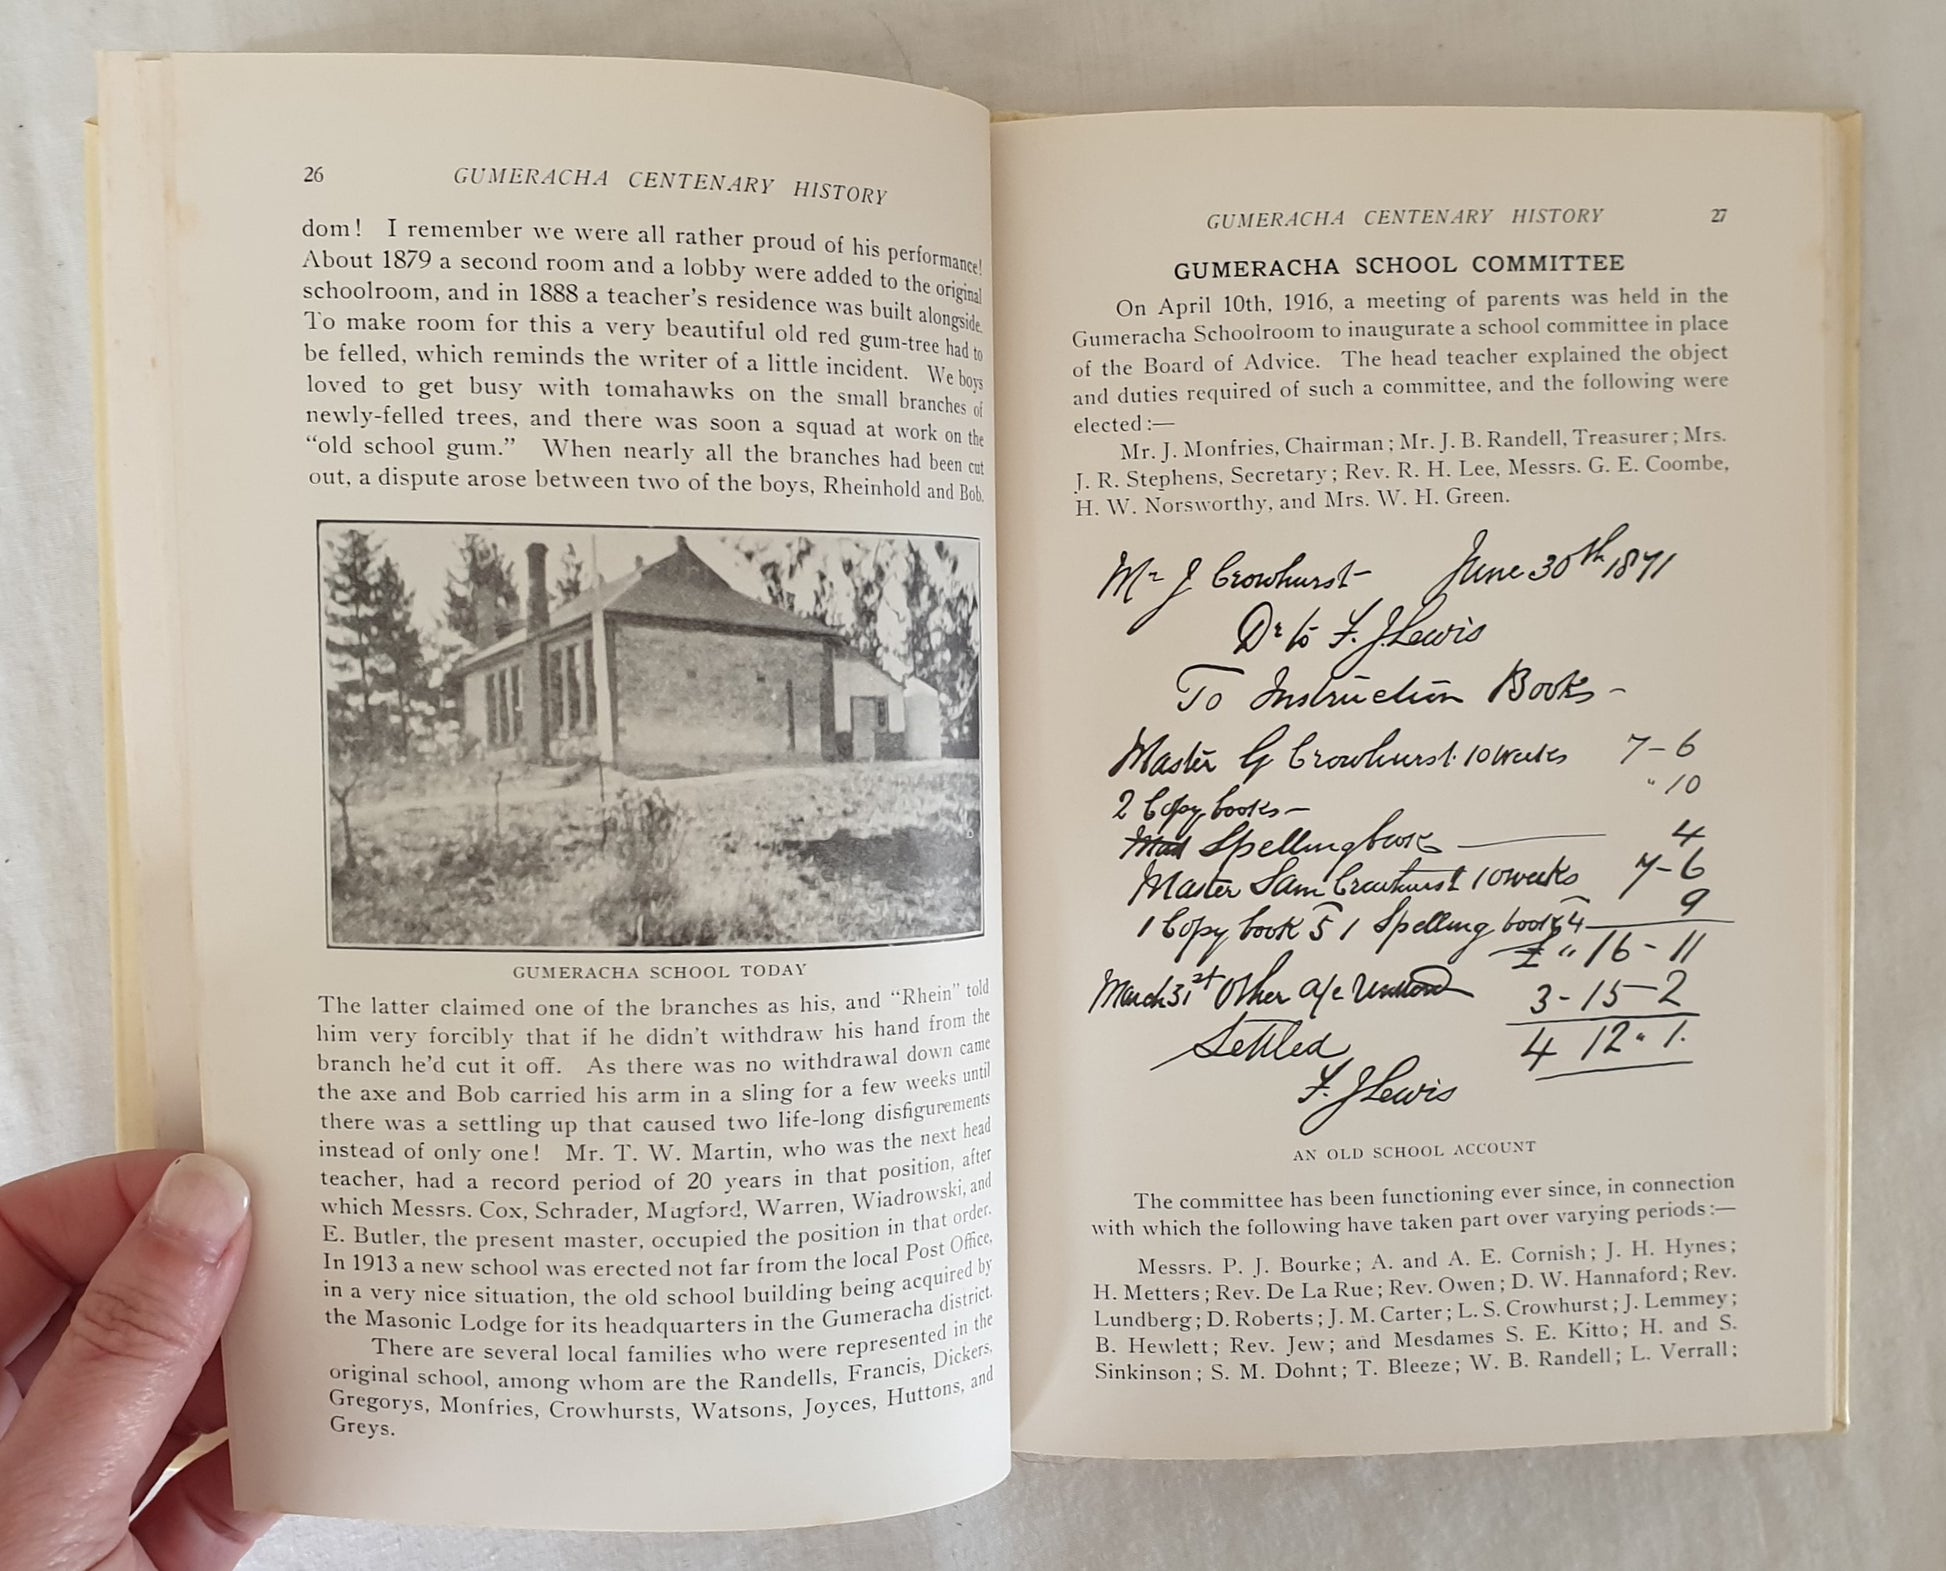 26 GUMERACHA CENTENARY HISTORY
dom! I remember we were all rather proud of his performance!
About 1879 a second room and a lobby were added to the original
schoolroom, and in 1888 a teacher's residence was built alongside.
To make room for this a very beautiful old red gum-tree had to
be felled, which reminds the writer of a little incident. We boys
loved to get busy with tomahawks on the small branches of
newly-felled trees, and there was soon a squad at work on the
"old school gum." When nearly all the branches had been cut
out, a dispute arose between two of the boys, Rheinhold and Bob.
GUMERACHA SCHOOL TODAY
The latter claimed one of the branches as his, and "Rhein" told
him very forcibly that if he didn't withdraw his hand from the
branch he'd cut it off. As there was no withdrawal down came
the axe and Bob carried his arm in a sling for a few weeks until
there was a settling up that caused two life-long disfigurements
instead of only one! Mr. T. W. Martin, who was the next head
teacher, had a record period of 20 years in that position, after
which Messrs. Cox, Schrader, Mugford, Warren, Wiadrowski, and
E. Butler, the present master, occupied the position in that order.
In 1913 a new school was erected not far from the local Post Office,
in a very nice situation, the old school building being acquired by
the Masonic Lodge for its headquarters in the Gumeracha district.
There are several local families who were represented in the
original school, among whom are the Randells, Francis, Dickers,
Gregorys, Monfries, Crowhursts, Watsons, Joyces, Huttons, and
Greys.
GUMERACHA CENTENARY HISTORY 27
GUMERACHA SCHOOL COMMITTEE
On April 10th, 1916, a meeting of parents was held in the
Gumeracha Schoolroom to inaugurate a school committee in place
of the Board of Advice. The head teacher explained the object
and duties required of such a committee, and the following were
elected:—
Mr. J. Monfries, Chairman; Mr. J. B. Randell, Treasurer; Mrs.
J. R. Stephens, Secretary; Rev. R. H. Lee, Messrs. G. E. Coombe,
H. W. Norsworthy, and Mrs. W. H. Green.
Mr J Crowhurst- June 30th 1871
Dr to F. J. Lewis
To Instruction Books -
Master G Crowhurst. 10 weeks 7-6
2 Copy books - " 10
Spelling book 4
Master Sam Crowhurst 10 weeks 7-6
1 Copy book 5 1 Spelling book 4 9
£ " 16-11
March 31st Other a/c 3-15-2
Settled 4 12 " 1.
F. J Lewis
AN OLD SCHOOL ACCOUNT
The committee has been functioning ever since, in connection
with which the following have taken part over varying periods:—
Messrs. P. J. Bourke; A. and A. E. Cornish; J. H. Hynes;
H. Metters; Rev. De La Rue; Rev. Owen; D. W. Hannaford; Rev.
Lundberg; D. Roberts; J. M. Carter; L. S. Crowhurst; J. Lemmey;
B. Hewlett; Rev. Jew; and Mesdames S. E. Kitto; H. and S.
Sinkinson; S. M. Dohnt; T. Bleeze; W. B. Randell; L. Verrall;